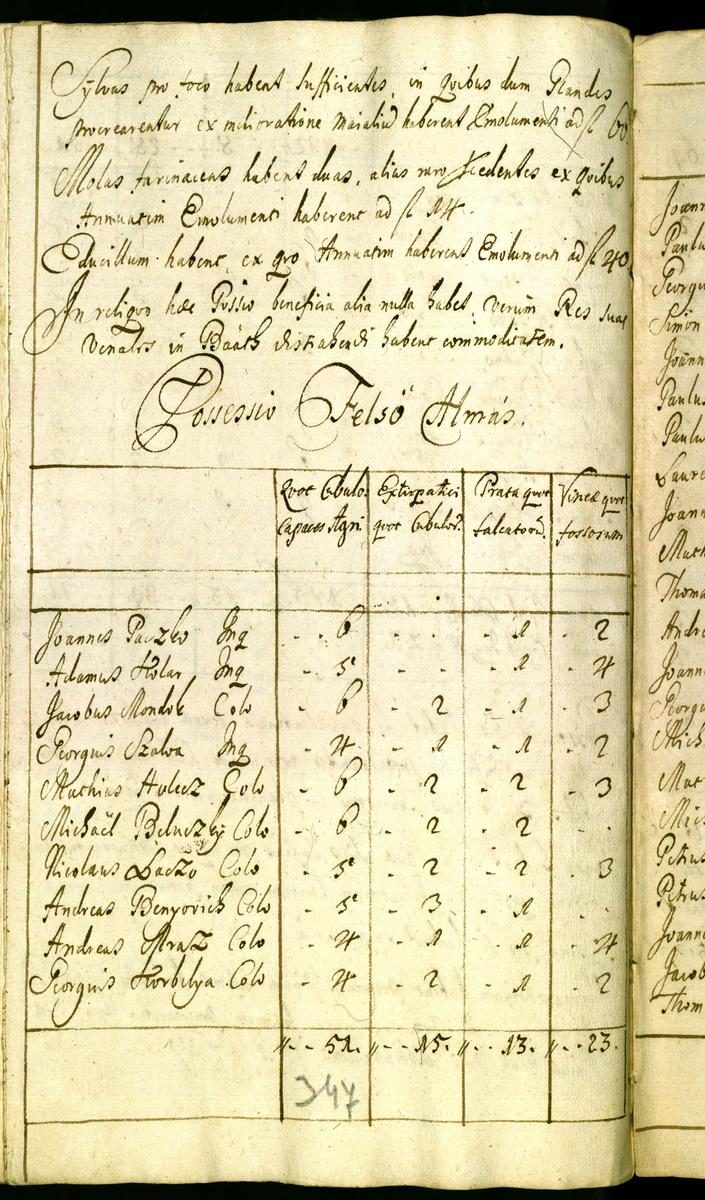 Sylvas pro foco habent Sufficientes, in qvibus dum Glandes
procrearentur ex melioratione Maialiū haberent Emolumenti ad fl 60
Molas farinaceas habent duas, alias raro ex qvibus
Annuatim Emolumenti haberent ad fl 14.
Educillum habent, ex qvo Annuatim haberent Emolumenti ad fl 40
In reliqvo hæc Possio beneficia alia nulla habet, verùm Res suas
venales in Baàth distrahendi habent commoditatem.
Possessio Felsö Almás.
Qvot Cubulos Extirpatici Prata qvot Vineæ qvot
Capaces Agri qvot Cubulor. falcatorū. fossorum
Joannes Paczko Inq - - 6 - - - - 1 - 2
Adamus Holar Inq - 5 - 1 - 4
Jacobus Mondok Colo - 6 - 2 - 1 - 3
Georgius Szalva Inq - 4 - 1 - 1 - 2
Mathias Holecz Colo - 6 - 2 - 2 - 3
Michaël Colo - 6 - 2 - 2 - -
Nicolaus Laczo Colo - 5 - 2 - 2 - 3
Andreas Benyovich Colo - 5 - 3 - 1 - -
Andreas Mraz Colo - 4 - 1 - 1 - 4
Georgius Korbelya Colo - 4 - 2 - 1 - 2
〃 - - 51. 〃 - - 15. 〃 - - 13. 〃 - - 23.
347
Joann
Paulu
Georgi
Simon
Joann
Paulus
Paulu
Laure
Joann
Math
Thoma
Andre
Joann
Georgi
Mich
Mat
Mic
Petrus
Petrus
Joann
Jacob
Thom